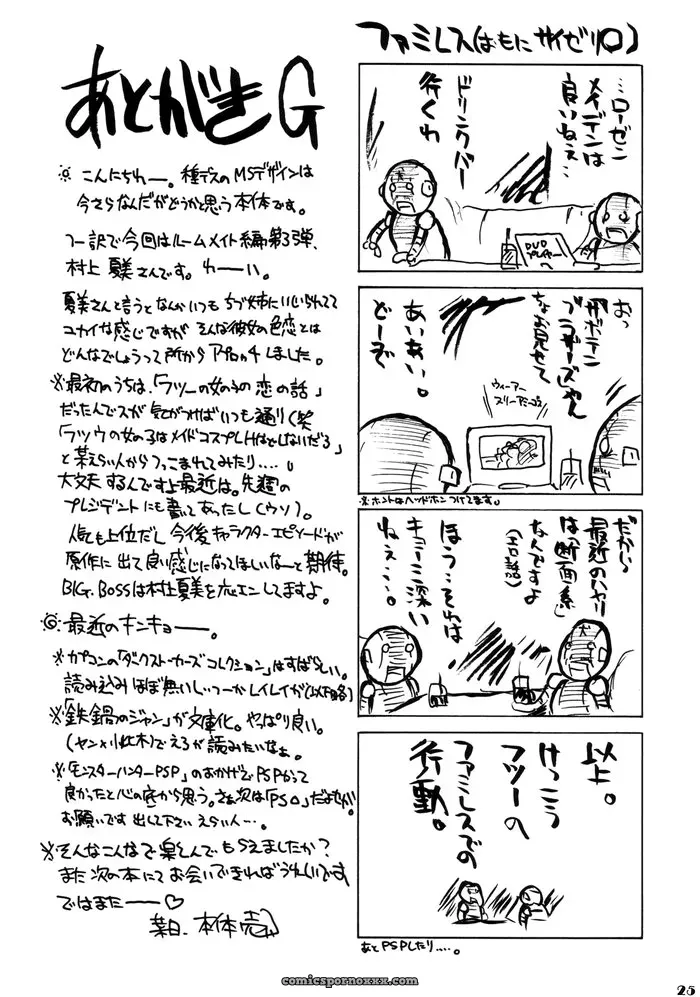 あとがきG
こんにちわー。種デスのMSデザインは
今さらなんだがどうか思う本体です。
つー訳で今回はルームメイト編第3弾、
村上夏美さんです。わーい。
夏美さんと言うとなんかいつもちづ姉にいじられてて
ユカイな感じですが そんな彼女の色恋とは
どんなでしょうって所からアプローチしました。
※最初のうちは、「フツーの女の子の恋の話」
だったんでスが 気がつけばいつも通り(笑
「フツウの女の子はメイドコスプレHはとしないだろ」
と某えらい人からつっこまれてみたり‥‥。
大丈夫するんですよ最近は。先週の
プレジデントにも書いてあったし(ウソ)。
人気も上位だし 今後キャラクターエピソードが
原作に出て良い感じになってほしいなーと期待。
BIG.BOSSは村上夏美を応エンしてますよ。
最近のキンキョー。
※カプコンの「ダークストーカーズコレクション」はすばらしい。
読み込みほぼ無いしっつーかレイレイが(以下略)
※「鉄鍋のジャン」が文庫化。やっぱり良い。
(ヤン×小此木)でえろが読みたいなぁ。
※「モンスターハンターPSP」のおかげでPSPかって
良かったと心の底から思う。さぁ次は「PS△」だよ
お願いです 出して下さいえらい人‥。
※そんなこんなで楽しんでもらえましたか?
また次の本にてお会いできればうれしいです
ではまたー♡
某日、本体売
ファミレス(はもにサイゼリ〇)
…ローゼン
メイデンは
良いねぇ…
ドリンクバー
行くわ
DVD
プレイヤー
へ
おっ
「サボテン
ブラザーズ」じゃん
ちょお見せて
あいあい。
どーぞ
ウィーアー
スリーアミーゴス
※ホントはヘッドホンつけてます。
だから
最近のハヤリ
は「断面系」
なんですよ
(エロ話)
ほう‥それは
キョーミ深い
ねぇ‥‥。
以上。
けっこう
フツーの
ファミレスでの
行動。
あとPSPしたり‥‥。
comicspornoxxx.com
25